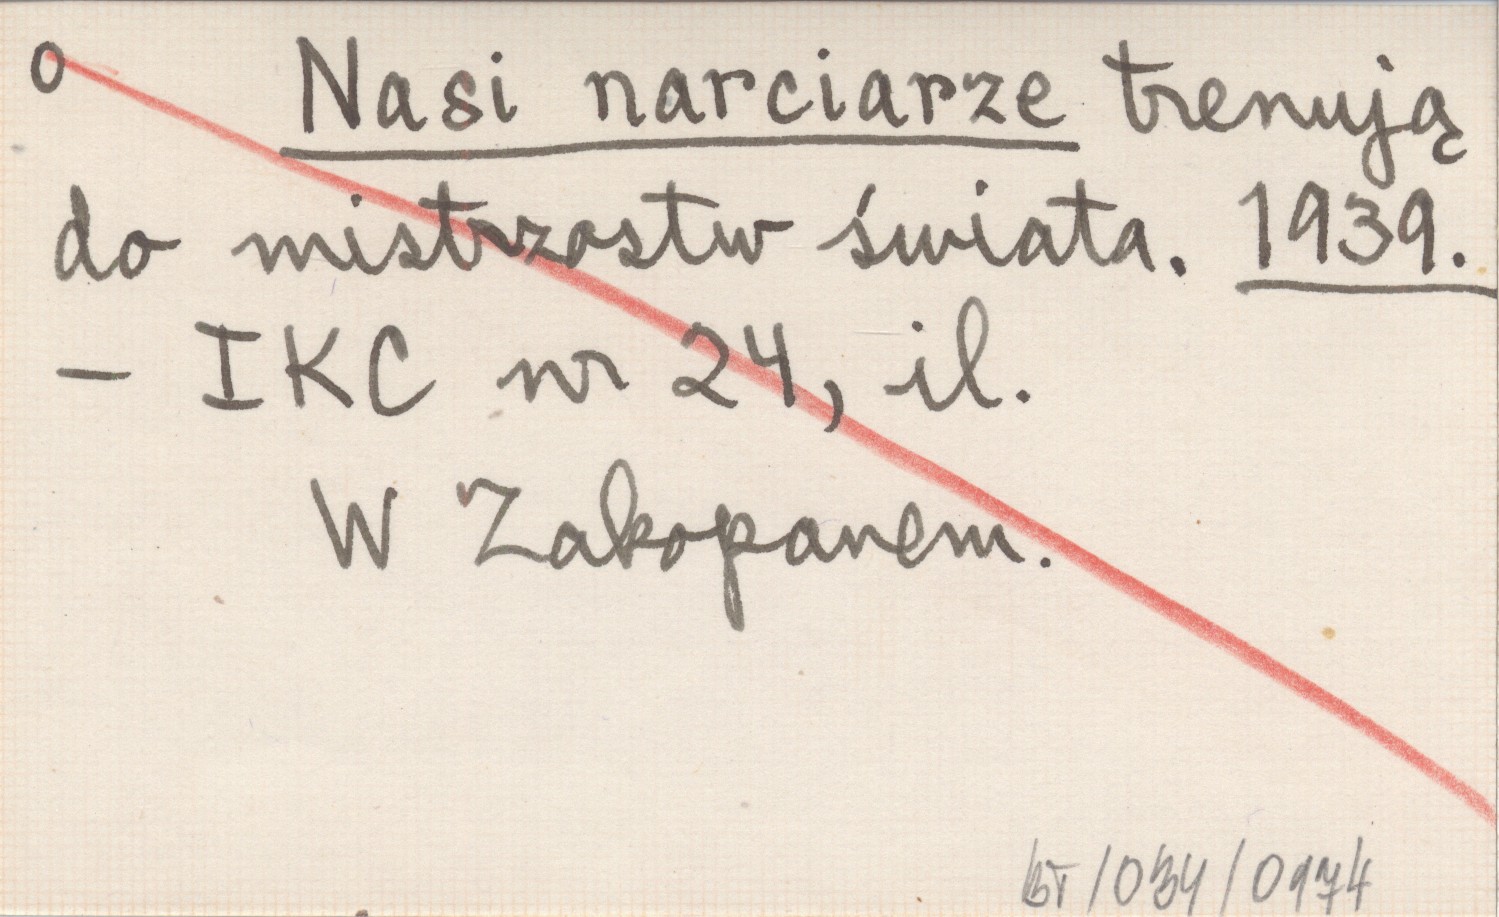 o Nasi narciarze trenują
do mistrzostw świata. 1939.
- IKC nr 24, il.
W Zakopanem.
BT/034/0974